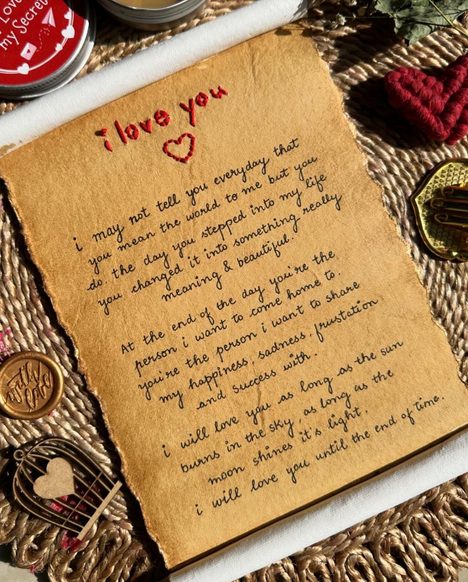 Love
my Secret
i love you
i may not tell you everyday that
you mean the world to me but you
do. the day you stepped into my life
you changed it into something really
meaning & beautiful.
At the end of the day you're the
person i want to come home to.
you're the person i want to share
my happiness, sadness, frustation
and success with.
i will love you as long as the sun
burns in the sky, as long as the
moon shines it's light.
i will love you until the end of time.